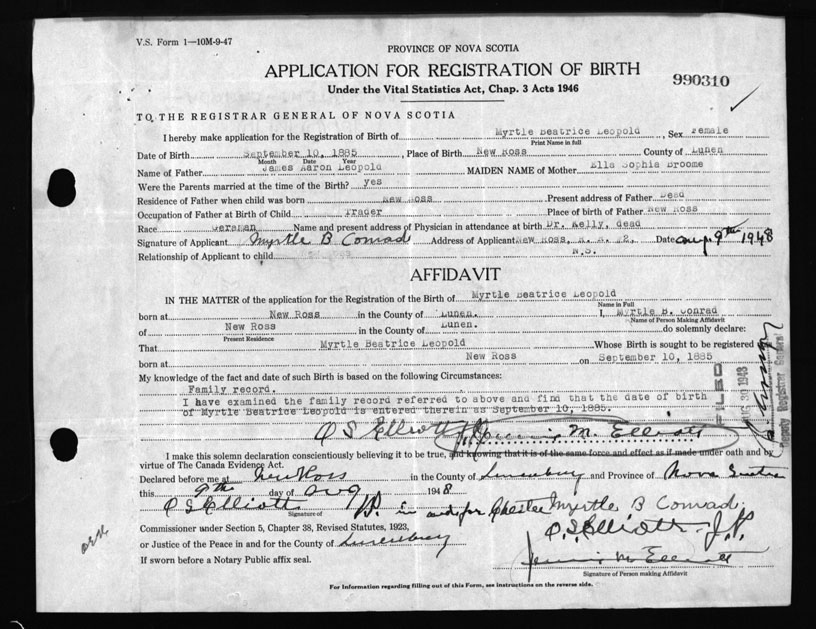 V.S. Form 1—10M-9-47
PROVINCE OF NOVA SCOTIA
APPLICATION FOR REGISTRATION OF BIRTH
990310
Under the Vital Statistics Act, Chap. 3 Acts 1946
TO THE REGISTRAR GENERAL OF NOVA SCOTIA
I hereby make application for the Registration of Birth of Myrtle Beatrice Leopold, Sex Female
Print Name in full
Date of Birth September 10, 1885, Place of Birth New Ross County of Lunen.
Month Date Year
Name of Father James Aaron Leopold MAIDEN NAME of Mother Ella Sophia Broome
Were the Parents married at the time of the Birth? yes
Residence of Father when child was born New Ross Present address of Father Dead
Occupation of Father at Birth of Child Trader Place of birth of Father New Ross
Race German Name and present address of Physician in attendance at birth Dr. Kelly, dead
Signature of Applicant Myrtle B Conrad Address of Applicant New Ross, R. R. #2, Date Aug. 9th 1948
Relationship of Applicant to child N.S.
AFFIDAVIT
IN THE MATTER of the application for the Registration of the Birth of Myrtle Beatrice Leopold
Name in Full
born at New Ross in the County of Lunen. I, Myrtle B. Conrad
Name of Person Making Affidavit
of New Ross in the County of Lunen. do solemnly declare:
Present Residence
That Myrtle Beatrice Leopold Whose Birth is sought to be registered was
born at New Ross on September 10, 1885
My knowledge of the fact and date of such Birth is based on the following Circumstances:
Family record.
I have examined the family record referred to above and find that the date of birth
of Myrtle Beatrice Leopold is entered therein as September 10, 1885.
FILED
AUG 30 1948
Deputy Registrar General
O S Elliott J.P. M. Elliott
I make this solemn declaration conscientiously believing it to be true, and knowing that it is of the same force and effect as if made under oath and by
virtue of The Canada Evidence Act.
Declared before me at New Ross in the County of Lunenburg and Province of Nova Scotia
this 9th day of Aug 1948
O S Elliott J.P. in and for Chester Myrtle B Conrad
Signature of
O.S. Elliott J.P.
Commissioner under Section 5, Chapter 38, Revised Statutes, 1923,
or Justice of the Peace in and for the County of Lunenburg
M Elliott
If sworn before a Notary Public affix seal.
Signature of Person making Affidavit
For Information regarding filling out of this Form, see instructions on the reverse side.